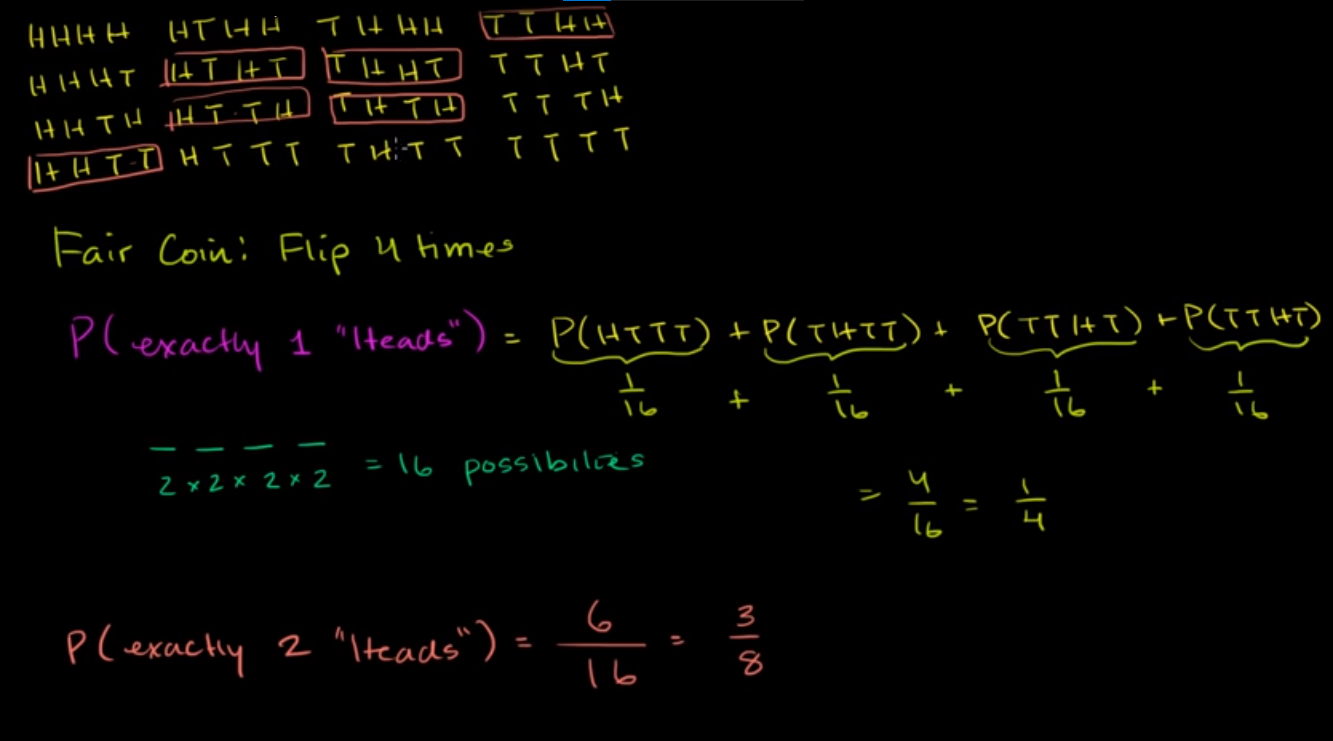 HHHH HTHH THHH TTHH
HHHT HTHT THHT TTHT
HHTH HTTH THTH TTTH
HHTT HTTT THTT TTTT
Fair Coin: Flip 4 times
P(exactly 1 "Heads") = P(HTTT) + P(THTT) + P(TTHT) + P(TTHT)
1/16 + 1/16 + 1/16 + 1/16
2 × 2 × 2 × 2 = 16 possibilities
= 4/16 = 1/4
P(exactly 2 "Heads") = 6/16 = 3/8